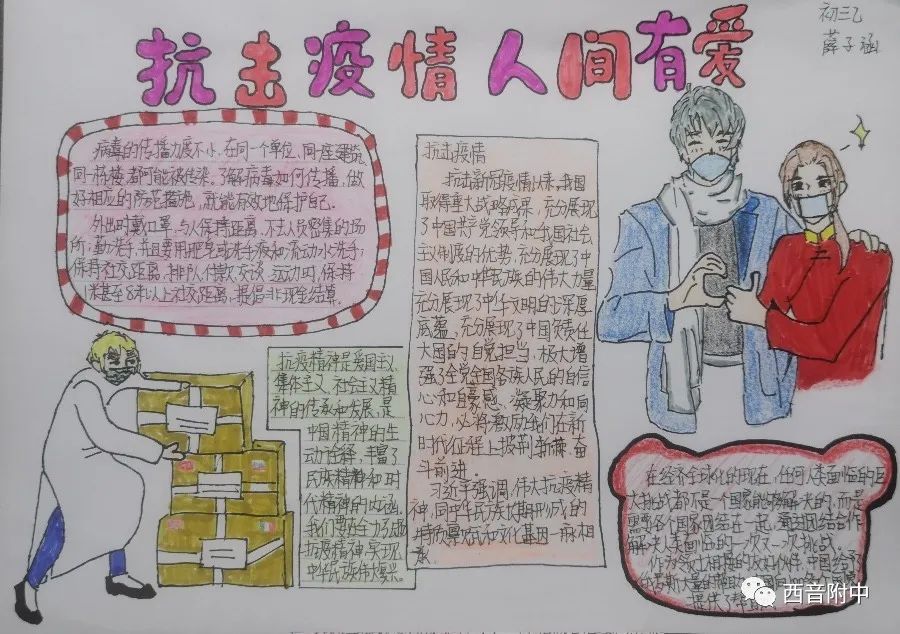 抗击疫情 人间有爱
初三乙
薛子涵
病毒的传播力度不小,在同一个单位,同一座建筑,
同一栋楼,都可能被传染。了解病毒如何传播,做
好相应的防范措施,就能有效地保护自己。
外出时戴口罩,与人保持距离,不去人员密集的场
所;勤洗手,并且要用肥皂或洗手液和流动水洗手;
保持社交距离,排队付款交谈、运动时,保持
1米甚至8米以上社交距离,提倡非现金结算。
抗击疫情
抗击新冠疫情以来,我国
取得重大战略成果,充分展现
了中国共产党领导和我国社会
主义制度的优势,充分展现了中
国人民和中华民族的伟大力量
充分展现了中华文明的深厚
底蕴,充分展现了中国负责任
大国的自觉担当,极大增
强了全党全国各族人民的自信
心和自豪感、凝聚力和向
心力,必将激励我们在新
时代征程上披荆斩棘,奋
斗前进。
习近平强调,伟大抗疫精
神,同中华民族长期形成的
特质禀赋和文化基因一脉相
承
抗疫精神是爱国主义、
集体主义、社会主义精
神的传承和发展,是
中国精神的生
动诠释,丰富了
民族精神和时
代精神的内涵
我们要在全力弘扬
抗疫精神,实现
中华民族伟大复兴。
在经济全球化的现在,任何人类面临的巨
大挑战都不是一个国家能够解决的,而是
需要各个国家团结在一起,漂动团结合作
解决人类面临的一次又一次挑战。
作为
提供了帮助
西音附中